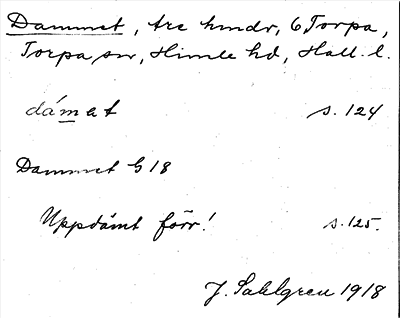 Dammet, tre hmdr, 6 Torpa,
Torpa sn, Himle hd, Hall. l.
dámet s. 124
Dammet G 18
Uppdämt förr! s. 125.
J. Sahlgren 1918